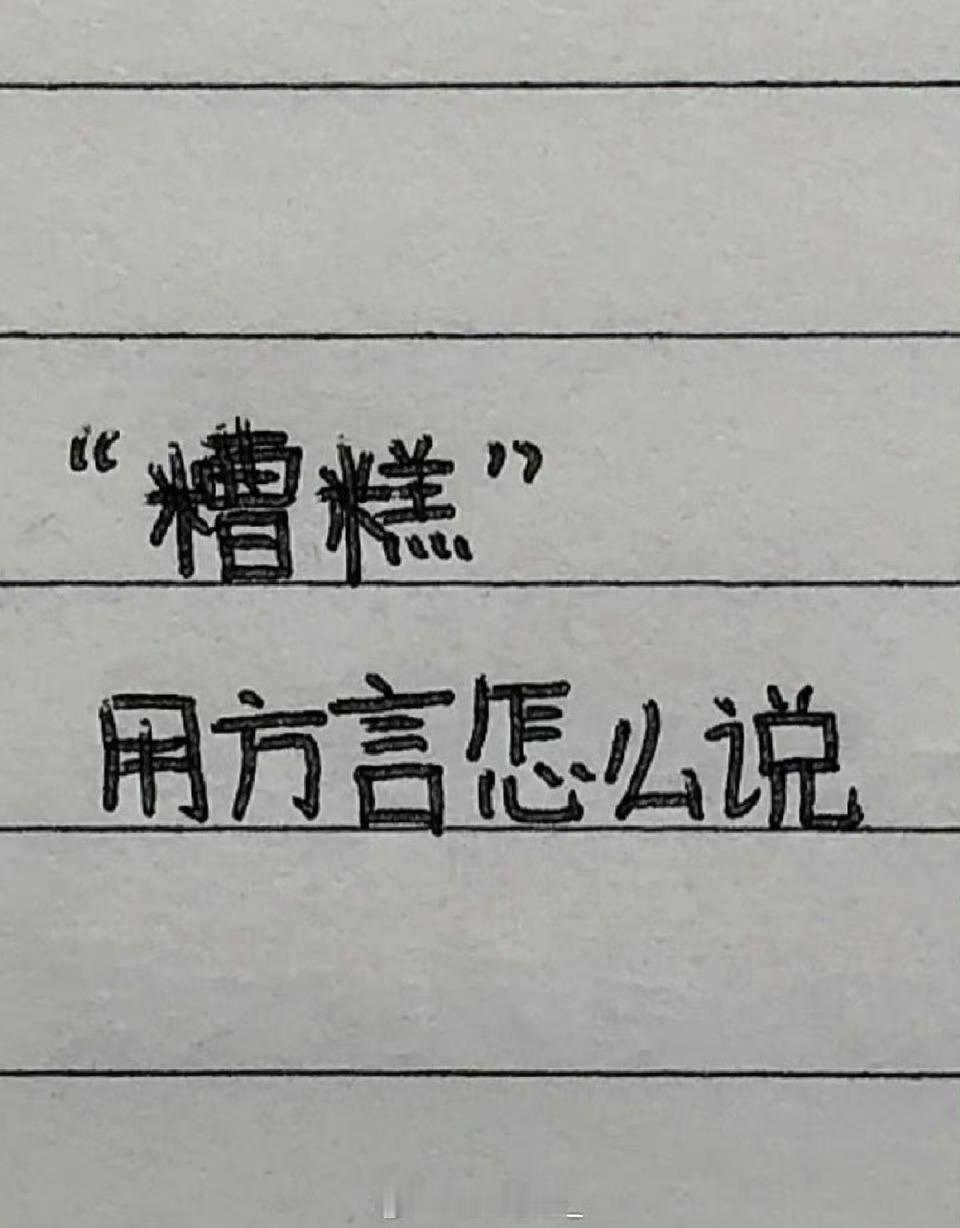 “糟糕”
用方言怎么说